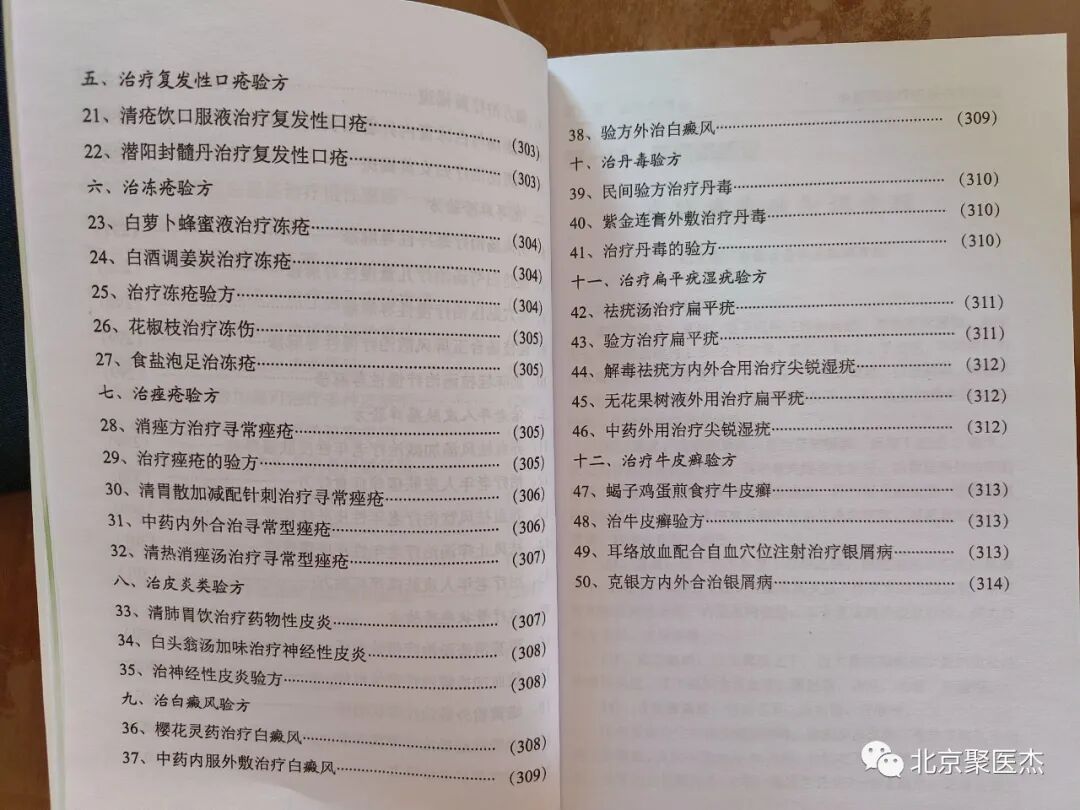 五、治疗复发性口疮验方
21、清疮饮口服液治疗复发性口疮……(303)
22、潜阳封髓丹治疗复发性口疮……(303)
六、治冻疮验方
23、白萝卜蜂蜜液治疗冻疮……(304)
24、白酒调姜炭治疗冻疮……(304)
25、治疗冻疮验方……(304)
26、花椒枝治疗冻伤……(305)
27、食盐泡足治冻疮……(305)
七、治痤疮验方
28、消痤方治疗寻常痤疮……(305)
29、治疗痤疮的验方……(305)
30、清胃散加减配针刺治疗寻常痤疮……(306)
31、中药内外合治寻常型痤疮……(306)
32、清热消痤汤治疗寻常型痤疮……(307)
八、治皮炎类验方
33、清肺胃饮治疗药物性皮炎……(307)
34、白头翁汤加味治疗神经性皮炎……(308)
35、治神经性皮炎验方……(308)
九、治白癜风验方
36、樱花灵药治疗白癜风……(308)
37、中药内服外敷治疗白癜风……(309)
38、验方外治白癜风……(309)
十、治丹毒验方
39、民间验方治疗丹毒……(310)
40、紫金连膏外敷治疗丹毒……(310)
41、治疗丹毒的验方……(310)
十一、治疗扁平疣湿疣验方
42、祛疣汤治疗扁平疣……(311)
43、验方治疗扁平疣……(311)
44、解毒祛疣方内外合用治疗尖锐湿疣……(312)
45、无花果树液外用治疗扁平疣……(312)
46、中药外用治疗尖锐湿疣……(312)
十二、治疗牛皮癣验方
47、蝎子鸡蛋煎食疗牛皮癣……(313)
48、治牛皮癣验方……(313)
49、耳络放血配合自血穴位注射治疗银屑病……(313)
50、克银方内外合治银屑病……(314)
北京聚医杰